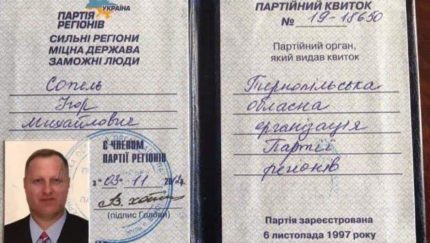 Україна
ПАРТІЯ
РЕГІОНІВ
СИЛЬНІ РЕГІОНИ
МІЦНА ДЕРЖАВА
ЗАМОЖНІ ЛЮДИ
Сопель
Ігор
Михайлович
Є ЧЛЕНОМ
ПАРТІЇ РЕГІОНІВ
з 03 11
(підпис Голови)
ПАРТІЙНИЙ КВИТОК
№ 19-18650
Партійний орган,
який видав квиток
Тернопільська
обласна
організація
Партії
регіонів
Партія зареєстрована
6 листопада 1997 року